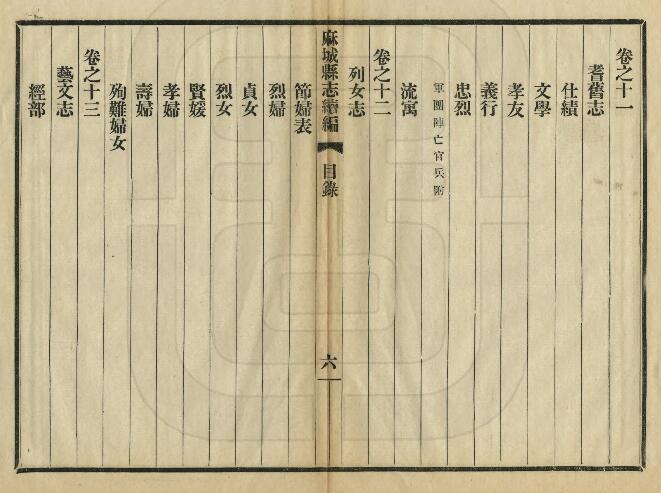 卷之十一
耆舊志
仕績
文學
孝友
義行
忠烈
軍團陣亡官兵附
流寓
卷之十二
列女志
麻城縣志續編
目錄
六
節婦表
烈婦
貞女
烈女
賢媛
孝婦
壽婦
殉難婦女
卷之十三
藝文志
經部